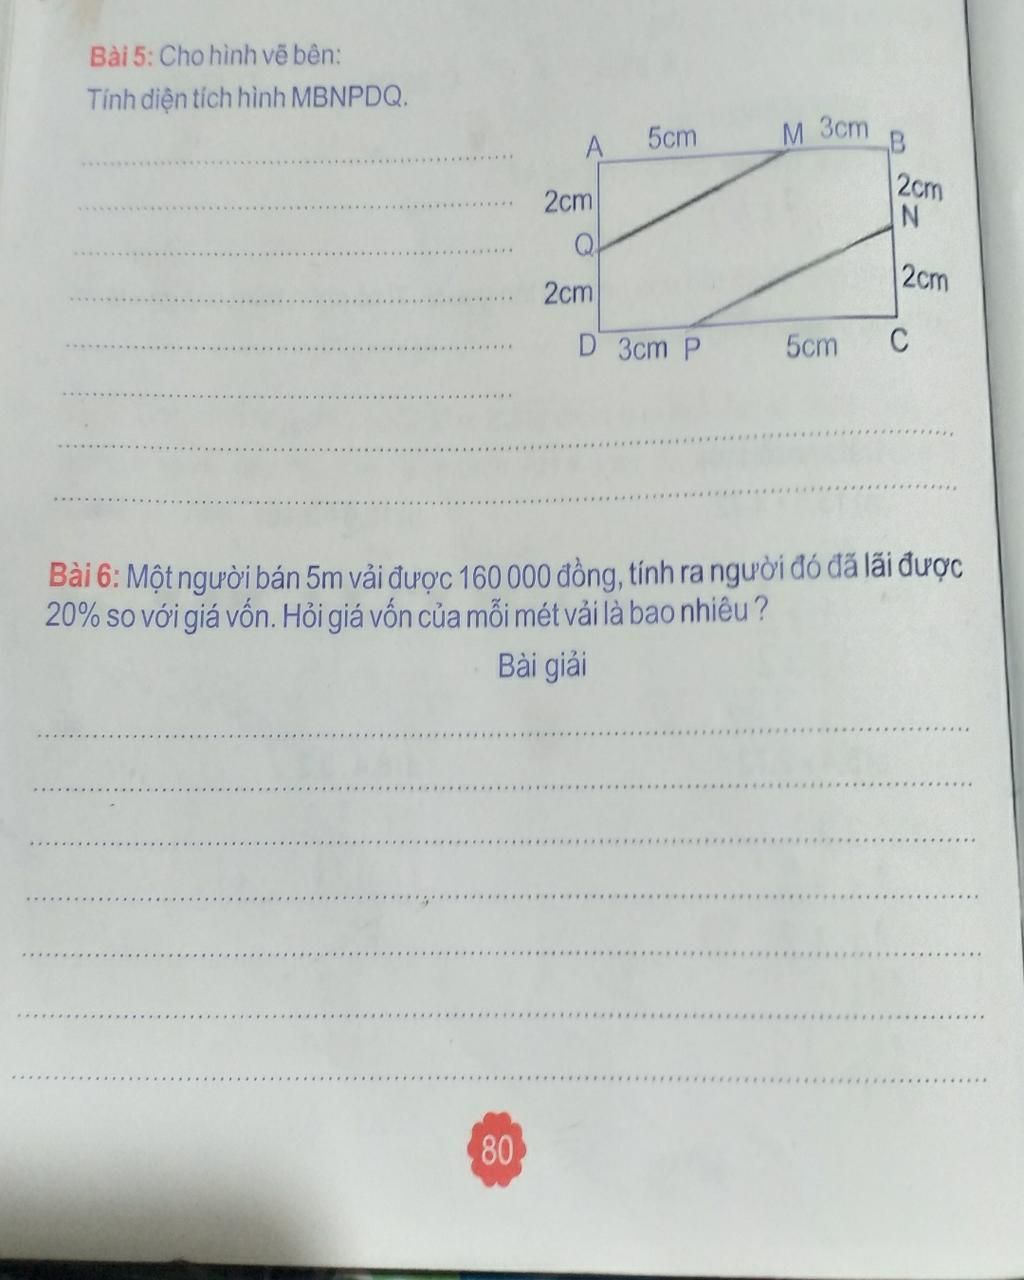 Bài 5: Cho hình vẽ bên:
Tính diện tích hình MBNPDQ.
A 5cm M 3cm B
2cm 2cm
Q N
2cm 2cm
D 3cm P 5cm C
Bài 6: Một người bán 5m vải được 160 000 đồng, tính ra người đó đã lãi được
20% so với giá vốn. Hỏi giá vốn của mỗi mét vải là bao nhiêu ?
Bài giải
80